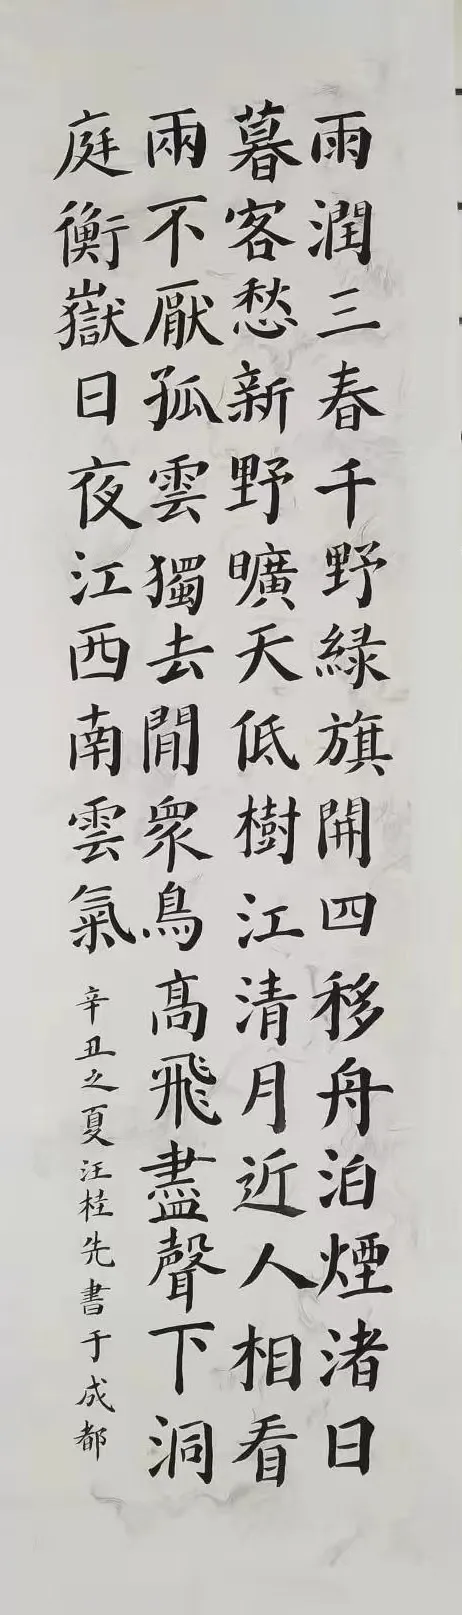 雨潤三春千野綠旗開四移舟泊煙渚日
暮客愁新野曠天低樹江清月近人相看
兩不厭孤雲獨去閒眾鳥高飛盡聲下洞
庭衡嶽日夜江西南雲氣
辛丑之夏汪桂先書于成都